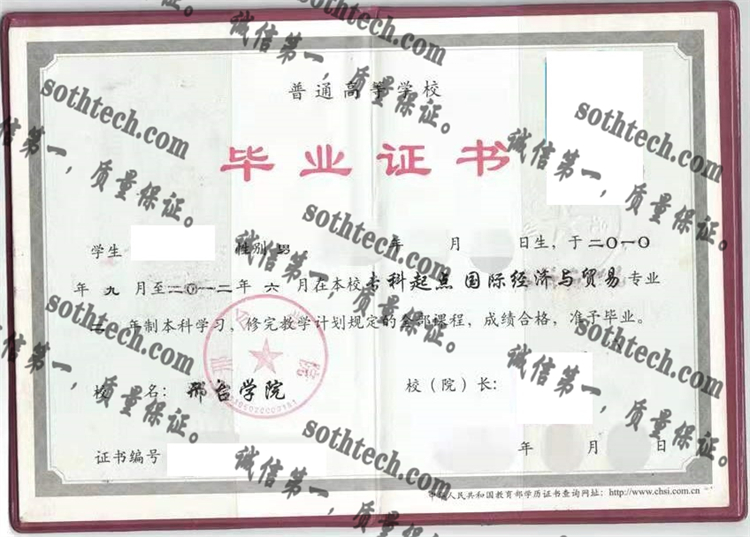 普通高等学校
毕业证书
学生 性别 男 年 月 日生，于二〇一〇
年 九 月至二〇一二年 六 月在本校专科起点 国际经济与贸易 专业
二 年制本科学习，修完教学计划规定的全部课程，成绩合格，准予毕业。
校 名： 邢台学院 校（院）长：
证书编号 年 月 日
中华人民共和国教育部学历证书查询网址：http://www.chsi.com.cn
sothtech.com
诚信第一，质量保证。
sothtech.com
诚信第一，质量保证。
sothtech.com
诚信第一，质量保证。
sothtech.com
诚信第一，质量保证。
sothtech.com
诚信第一，质量保证。
sothtech.com
诚信第一，质量保证。
sothtech.com
诚信第一，质量保证。
sothtech.com
诚信第一，质量保证。